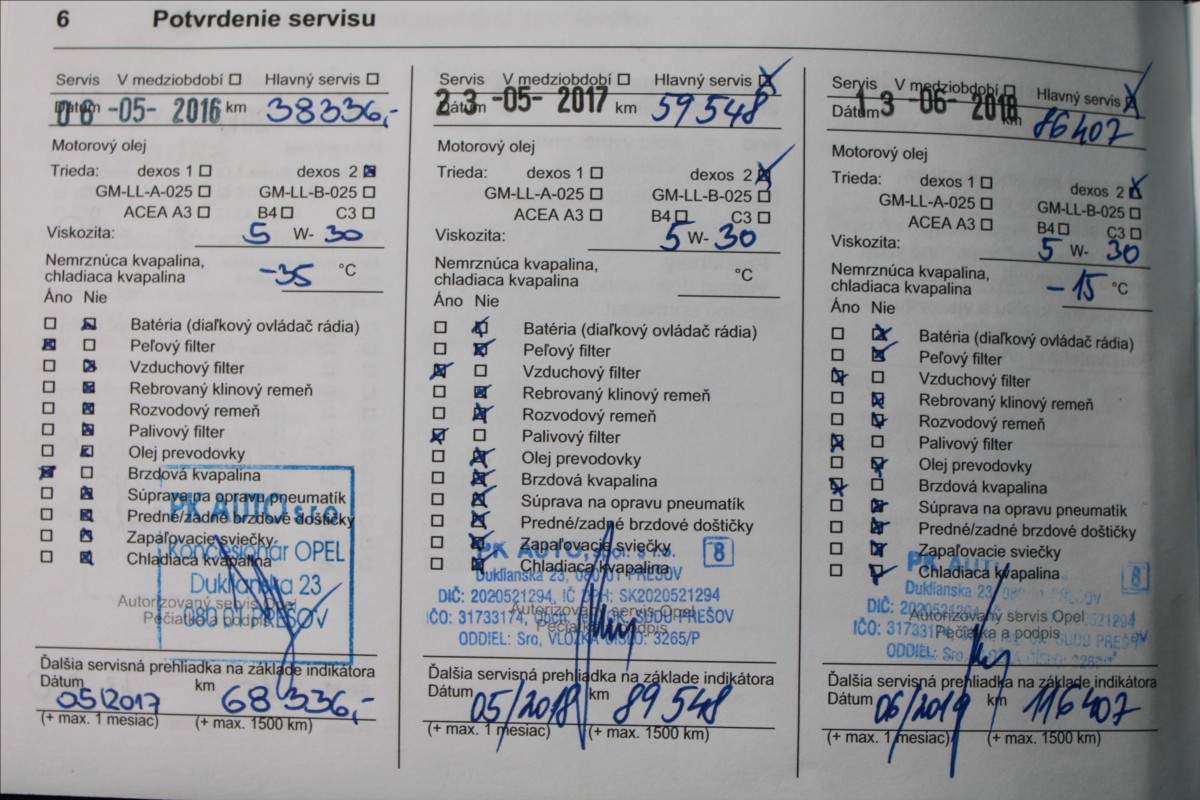 6 Potvrdenie servisu
Servis V medziobdobí Hlavný servis
Dátum 06 -05- 2016 km 38336,-
Motorový olej
Trieda: dexos 1 dexos 2
GM-LL-A-025 GM-LL-B-025
ACEA A3 B4 C3
Viskozita: 5 W- 30
Nemrznúca kvapalina,
chladiaca kvapalina -35 °C
Áno Nie
Batéria (diaľkový ovládač rádia)
Peľový filter
Vzduchový filter
Rebrovaný klinový remeň
Rozvodový remeň
Palivový filter
Olej prevodovky
Brzdová kvapalina
Súprava na opravu pneumatík
PK AUTO s.r.o.
Predné/zadné brzdové doštičky
Zapaľovacie sviečky
Koncesionár OPEL
Chladiaca kvapalina
Duklianska 23
Autorizovaný servis Opel
080 01 PREŠOV
Pečiatka a podpis
Ďalšia servisná prehliadka na základe indikátora
Dátum 05/2017 km 68336,-
(+ max. 1 mesiac) (+ max. 1500 km)
Servis V medziobdobí Hlavný servis
Dátum 23 -05- 2017 km 59548
Motorový olej
Trieda: dexos 1 dexos 2
GM-LL-A-025 GM-LL-B-025
ACEA A3 B4 C3
Viskozita: 5 W- 30
Nemrznúca kvapalina,
chladiaca kvapalina °C
Áno Nie
Batéria (diaľkový ovládač rádia)
Peľový filter
Vzduchový filter
Rebrovaný klinový remeň
Rozvodový remeň
Palivový filter
Olej prevodovky
Brzdová kvapalina
Súprava na opravu pneumatík
Predné/zadné brzdové doštičky
Zapaľovacie sviečky
PK AUTO, spol. s r.o. 8
Chladiaca kvapalina
Duklianska 23, 080 01 PREŠOV
DIČ: 2020521294, IČ DPH: SK2020521294
Autorizovaný servis Opel
IČO: 31733174, SÚDU PREŠOV
Pečiatka a podpis
ODDIEL: Sro, VLOŽKA ČÍSLO: 3265/P
Ďalšia servisná prehliadka na základe indikátora
Dátum 05/2018 km 89548
(+ max. 1 mesiac) (+ max. 1500 km)
Servis V medziobdobí Hlavný servis
Dátum 13 -06- 2018 km 86407
Motorový olej
Trieda: dexos 1 dexos 2
GM-LL-A-025 GM-LL-B-025
ACEA A3 B4 C3
Viskozita: 5 W- 30
Nemrznúca kvapalina,
chladiaca kvapalina -15 °C
Áno Nie
Batéria (diaľkový ovládač rádia)
Peľový filter
Vzduchový filter
Rebrovaný klinový remeň
Rozvodový remeň
Palivový filter
Olej prevodovky
Brzdová kvapalina
Súprava na opravu pneumatík
Predné/zadné brzdové doštičky
Zapaľovacie sviečky
PK AUTO 8
Chladiaca kvapalina
Duklianska 23, PREŠOV
DIČ: 2020521294
Autorizovaný servis Opel
IČO: 31733174 SÚDU PREŠOV
Pečiatka a podpis
ODDIEL: Sro,
Ďalšia servisná prehliadka na základe indikátora
Dátum 06/2019 km 116407
(+ max. 1 mesiac) (+ max. 1500 km)